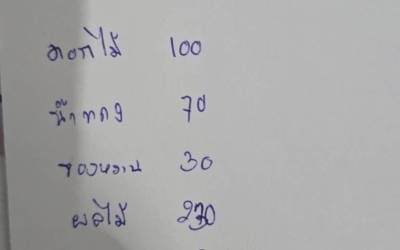 ดอกไม้ 100
น้ำแดง 70
ของหวาน 30
ผลไม้ 230